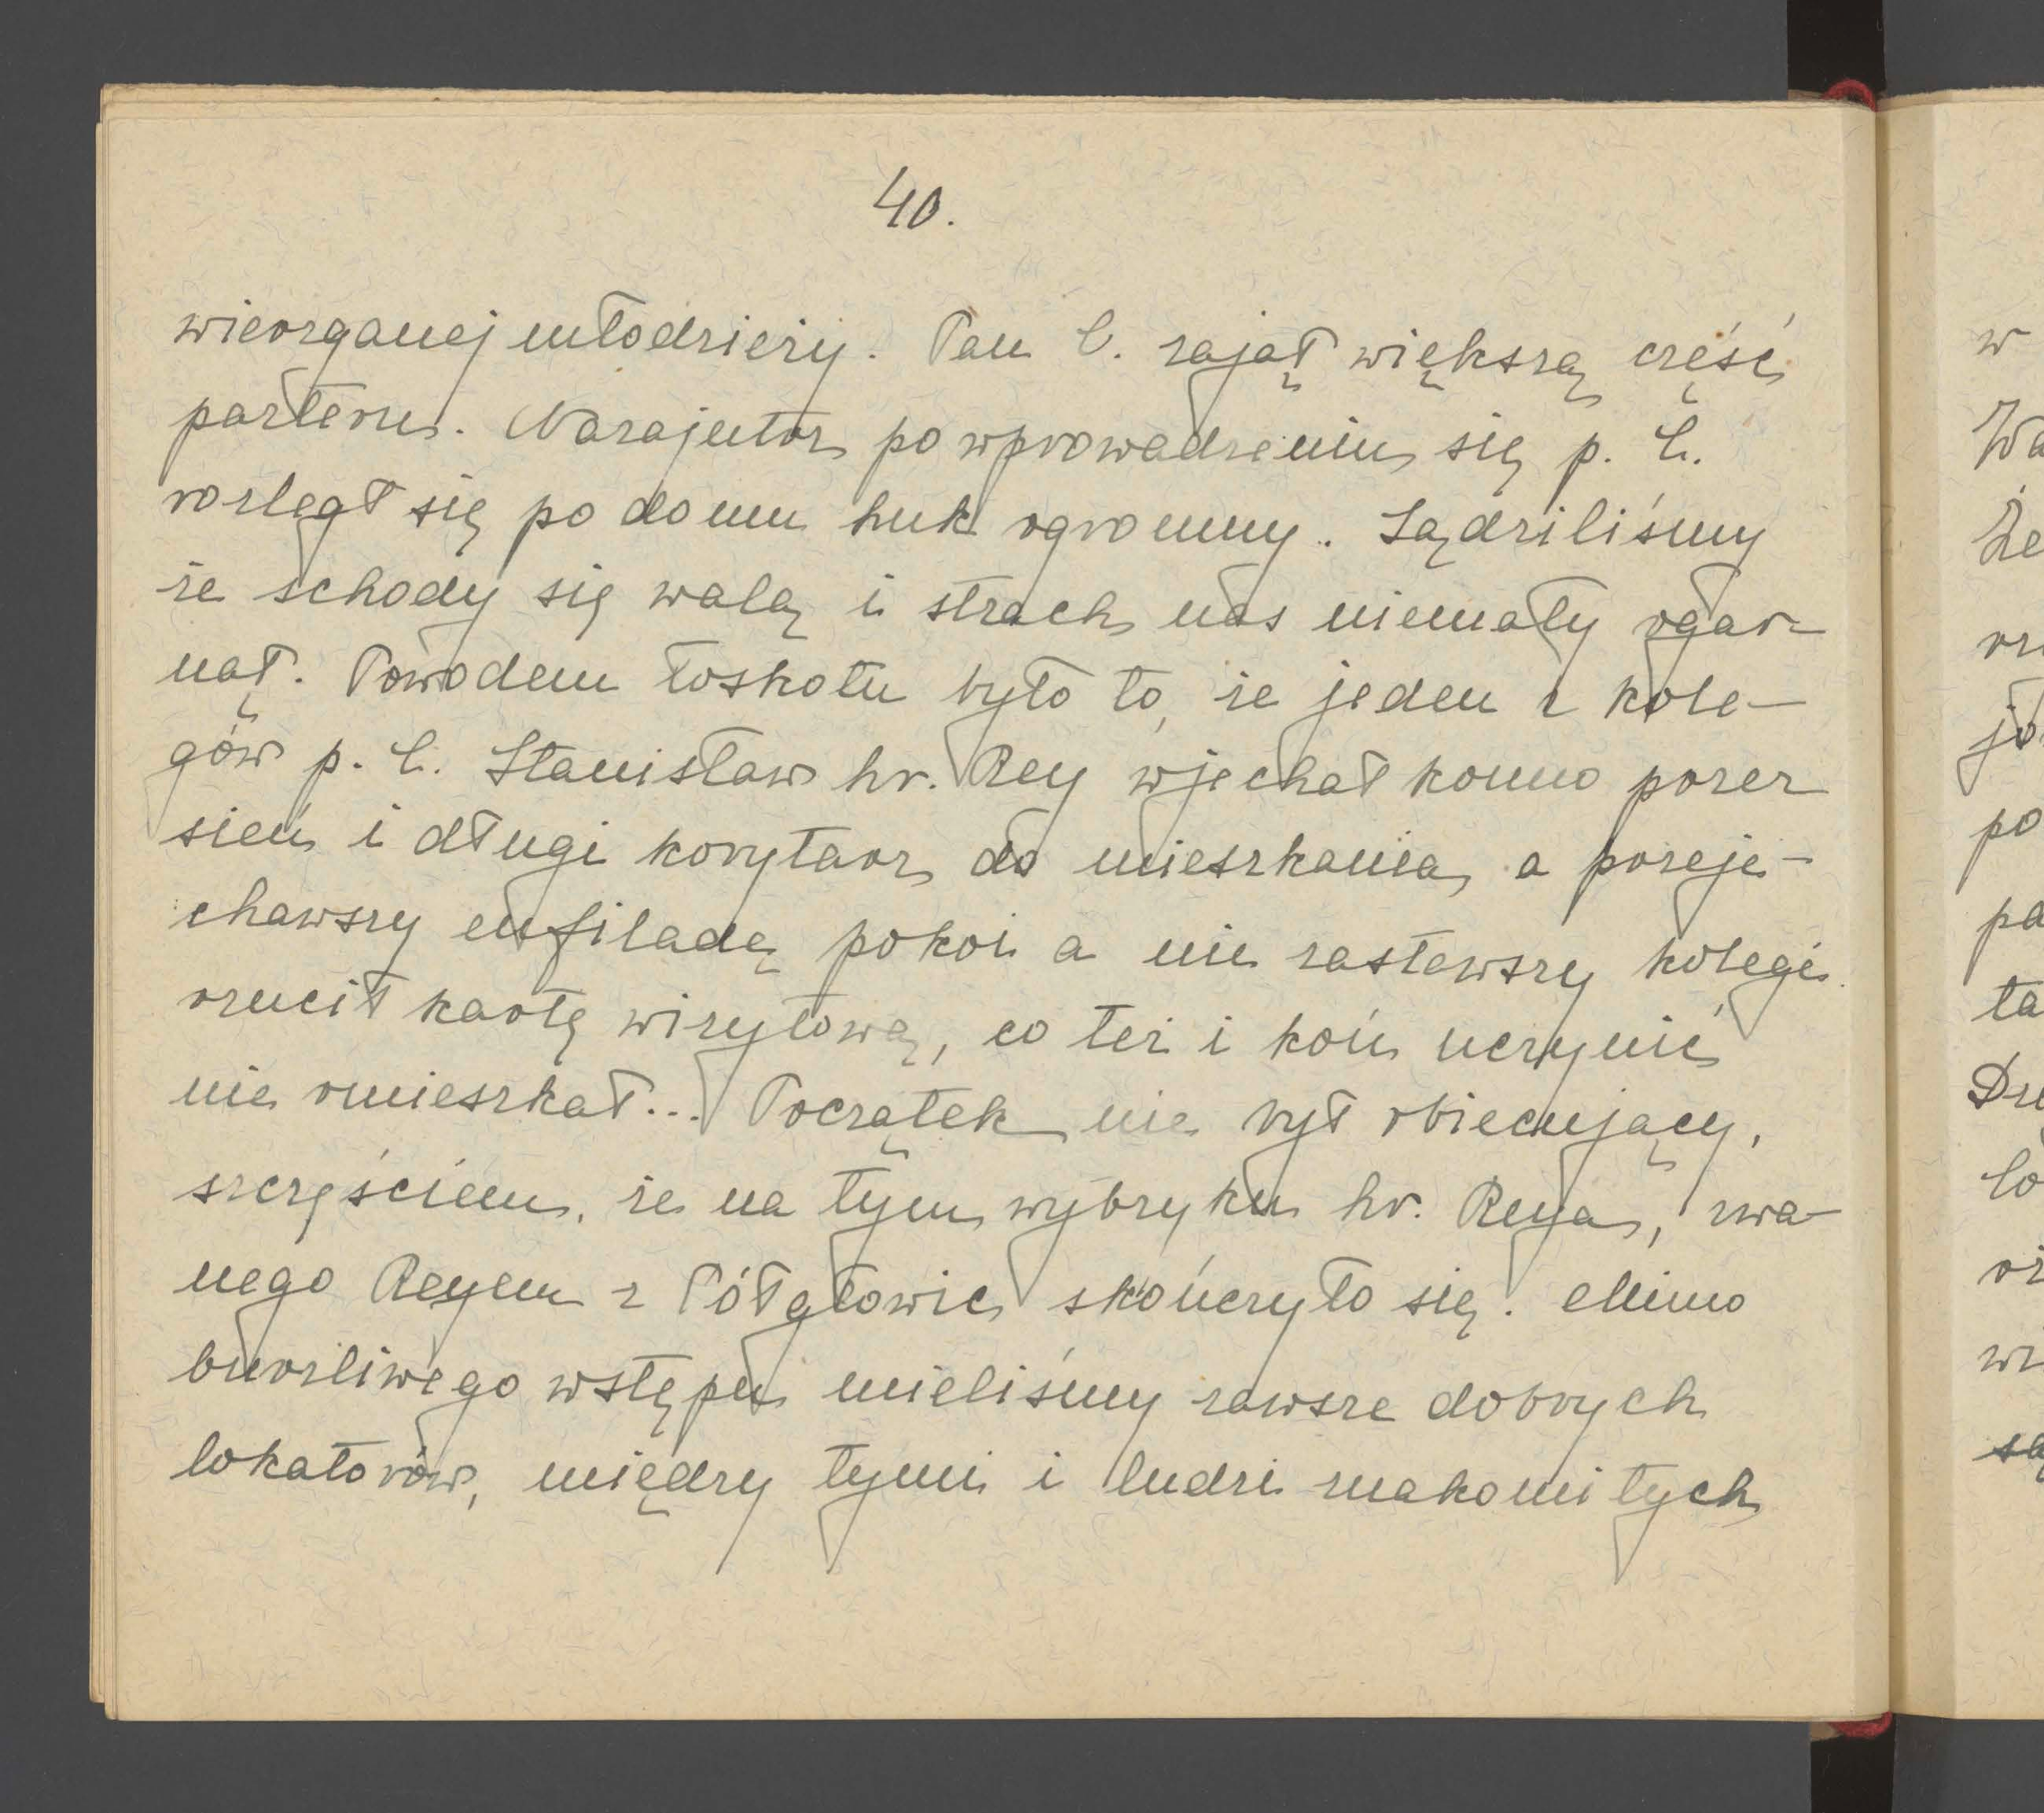 40.
wierzganej młodzieży. Pan C. zajął większą część
parteru. Nazajutrz po wprowadzeniu się p. C.
rozległ się po domu huk ogromny. Sądziliśmy
że schody się walą i strach nas niemały ogar-
nął. Powodem łoskotu było to, że jeden z kole-
gów p. C. Stanisław hr. Rey wjechał konno przez
sień i długi korytarz do mieszkania, a przeje-
chawszy enfiladę pokoi a nie zastawszy kolegi
rzucił kartę wizytową, co też i koń uczynić
nie omieszkał... Początek nie był obiecujący,
szczęściem, że na tym wybryku hr. Reya, zwa-
nego Reyem z Półgłowic skończyło się. Mimo
burzliwego wstępu mieliśmy zawsze dobrych
lokatorów, między tymi i ludzi znakomitych
w
Wa
że
jo
po
pa
ta
Dru
lo